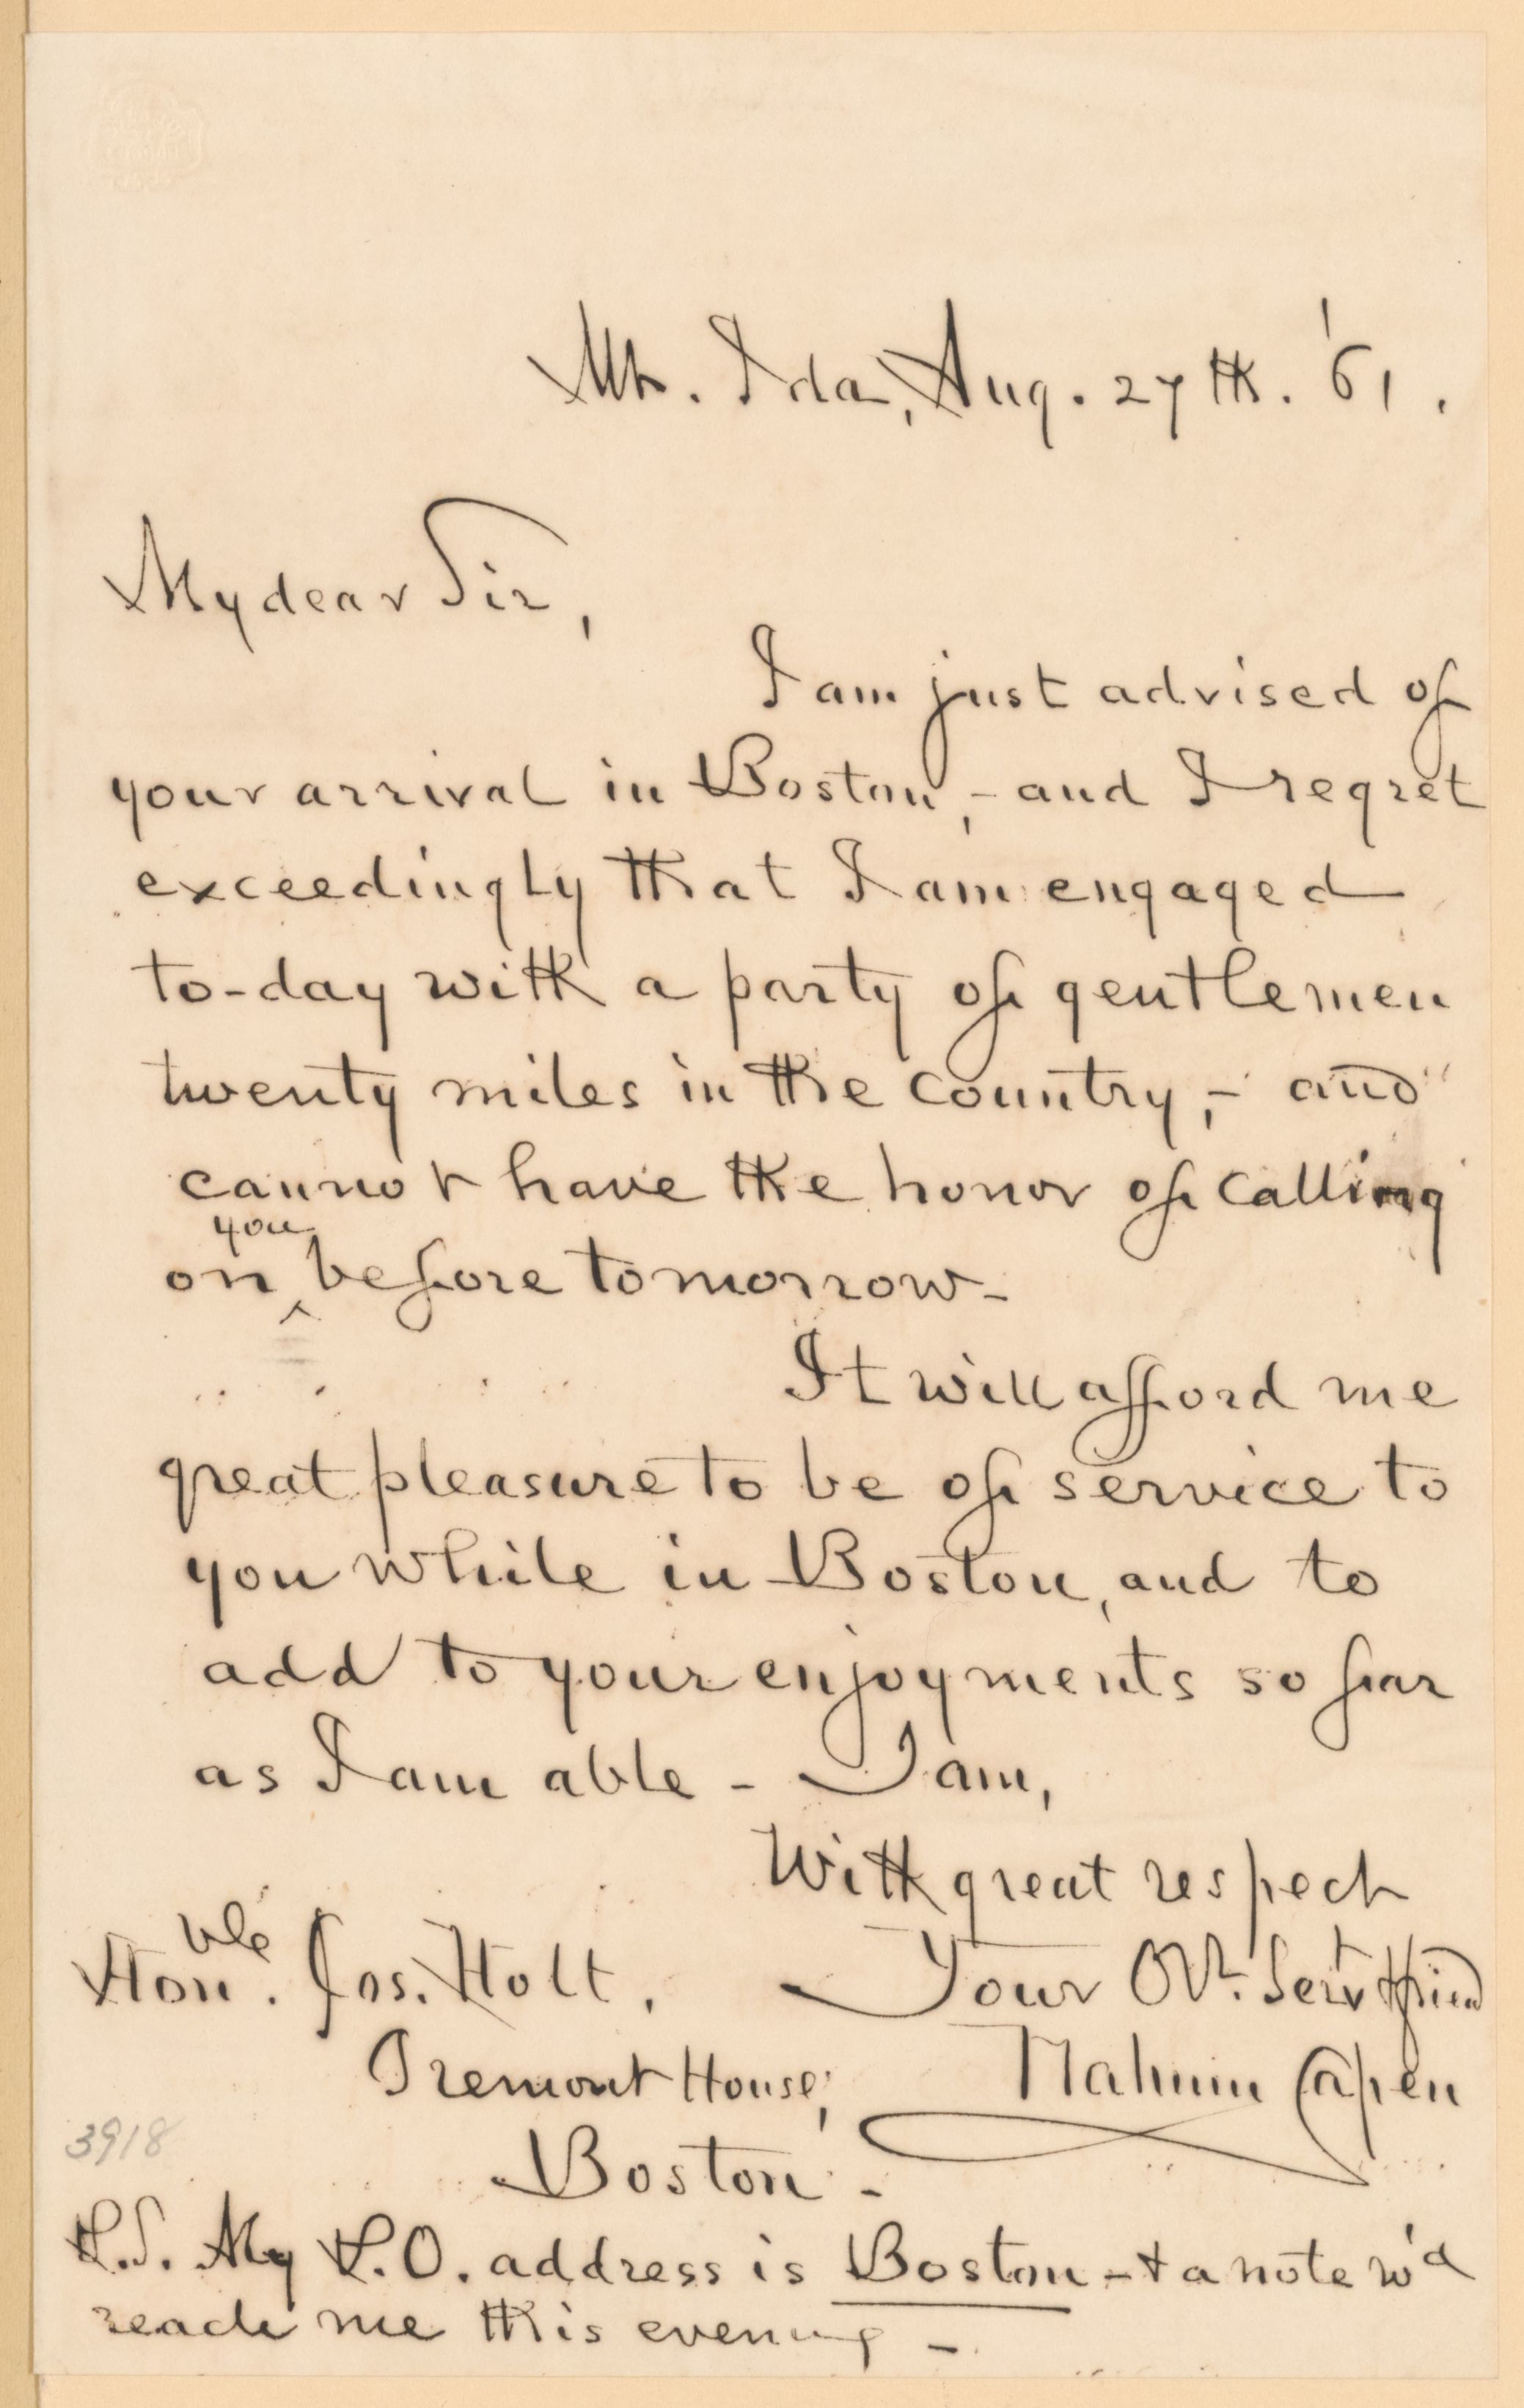 Mt. Ida, Aug. 27th. '61.
My dear Sir,
I am just advised of
your arrival in Boston,- and I regret
exceedingly that I am engaged
to-day with a party of gentlemen
twenty miles in the country,- and
cannot have the honor of calling
on ^you before tomorrow-
It will afford me
great pleasure to be of service to
you while in Boston, and to
add to your enjoyments so far
as I am able - I am,
With great respect
Your Obt. Servt & friend
Nahum Capen
Honble. Jos. Holt.
Tremont House,
Boston -
3918
P.S. My P.O. address is Boston - & a note w'd
reach me this evening -